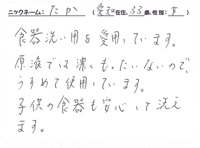 ニックネーム：たか（愛知在住、33歳、性別：女）
食器洗い用を愛用しています。
原液では濃くもったいないので、
うすめて使用しています。
子供の食器も安心して洗え
ます。